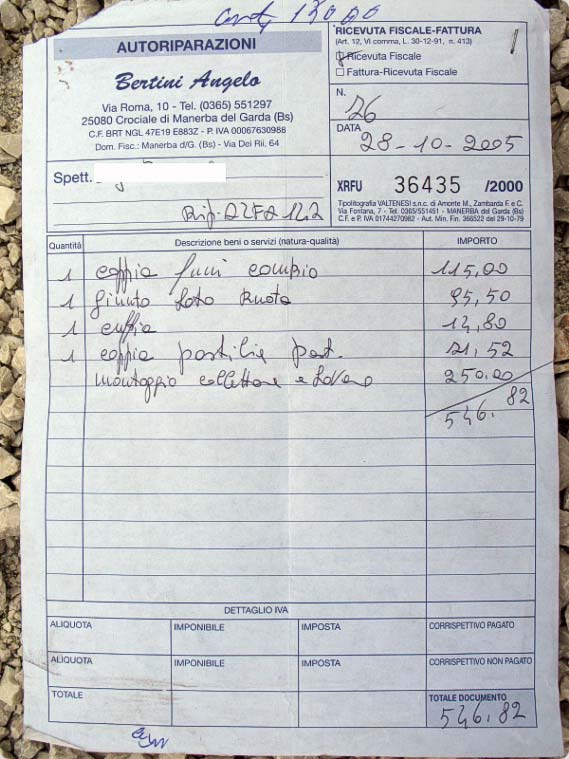 13000
AUTORIPARAZIONI
Bertini Angelo
Via Roma, 10 - Tel. (0365) 551297
25080 Crociale di Manerba del Garda (Bs)
C.F. BRT NGL 47E19 E883Z - P. IVA 00067630988
Dom. Fisc.: Manerba d/G. (Bs) - Via Dei Rii, 64
RICEVUTA FISCALE-FATTURA
(Art. 12, VI comma, L. 30-12-91, n. 413)
Ricevuta Fiscale
Fattura-Ricevuta Fiscale
N.
26
DATA
28-10-2005
Spett.
Rif.
XRFU 36435 /2000
Tipolitografia VALTENESI s.n.c. di Amonte M., Zambarda F. e C.
Via Fontana, 7 - Tel. 0365/551451 - MANERBA del Garda (BS)
C.F. e P. IVA 01744270982 - Aut. Min. Fin. 366522 del 29-10-79
Quantità Descrizione beni o servizi (natura-qualità) IMPORTO
1 coppia funi cambio 115,00
1 giunto lato ruota 95,50
1 cuffia 14,80
1 coppia pastiglie post. 71,52
montaggio collettore e 250.00
546.82
DETTAGLIO IVA
ALIQUOTA IMPONIBILE IMPOSTA CORRISPETTIVO PAGATO
ALIQUOTA IMPONIBILE IMPOSTA CORRISPETTIVO NON PAGATO
TOTALE TOTALE DOCUMENTO
546.82